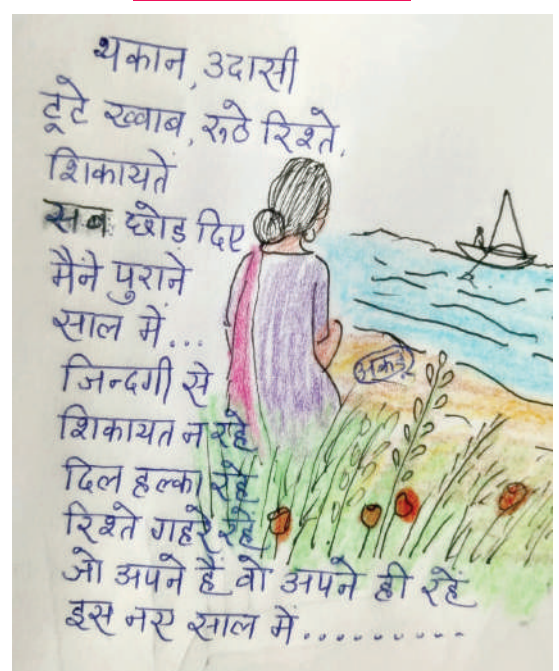 थकान, उदासी
टूटे ख्वाब, रूठे रिश्ते,
शिकायतें
सब छोड़ दिए
मैंने पुराने
साल में...
जिन्दगी से
शिकायत न रहे
दिल हल्का रहे
रिश्ते गहरे रहे
जो अपने हैं वो अपने ही रहें
इस नए साल में..........